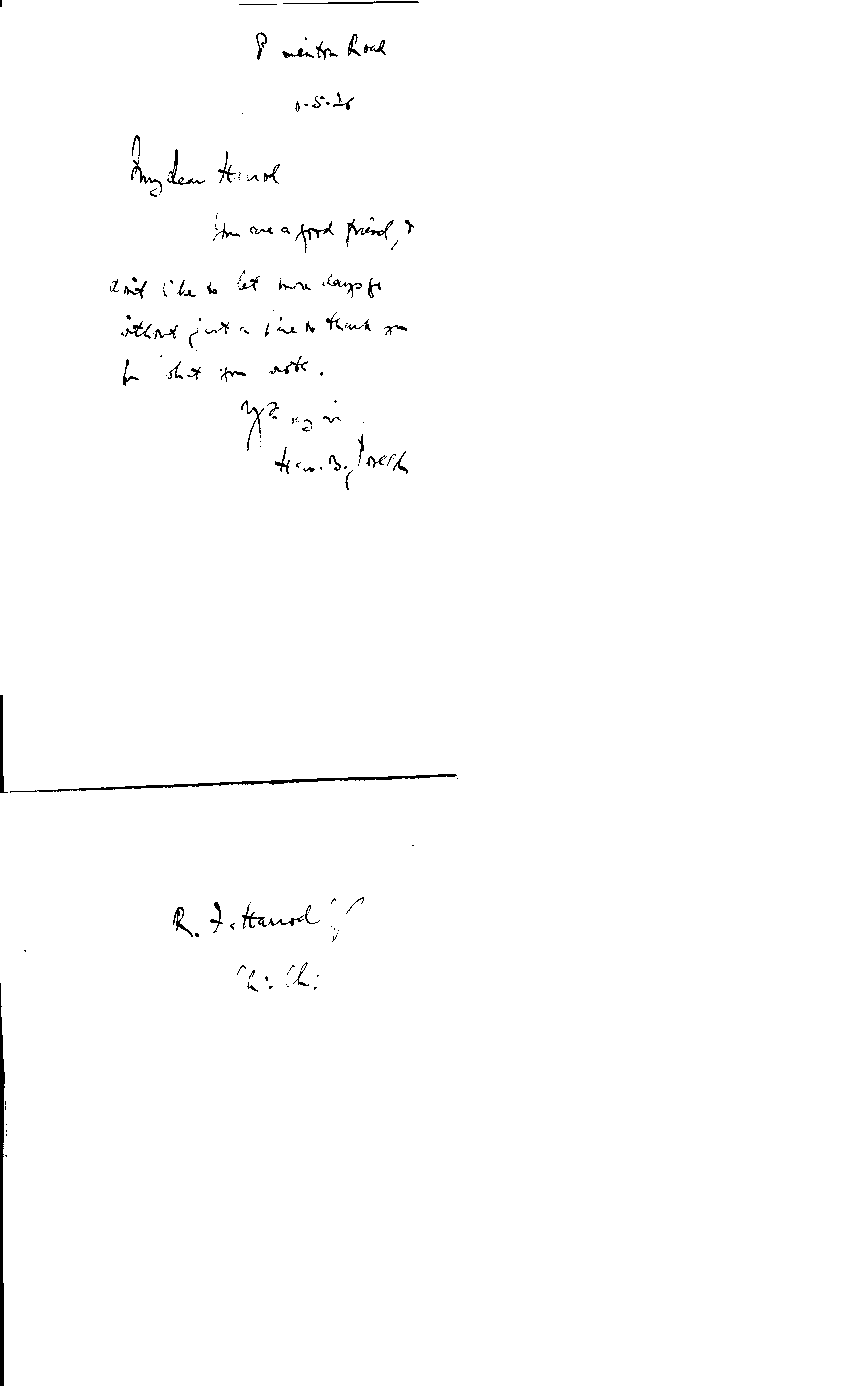 8 Merton Road
My dear Harrod
You are a good friend, &
don't like to let more days go
without just a line to thank you
for what you wrote.
H.W.B. Joseph
R. F. Harrod
Ch: Ch: